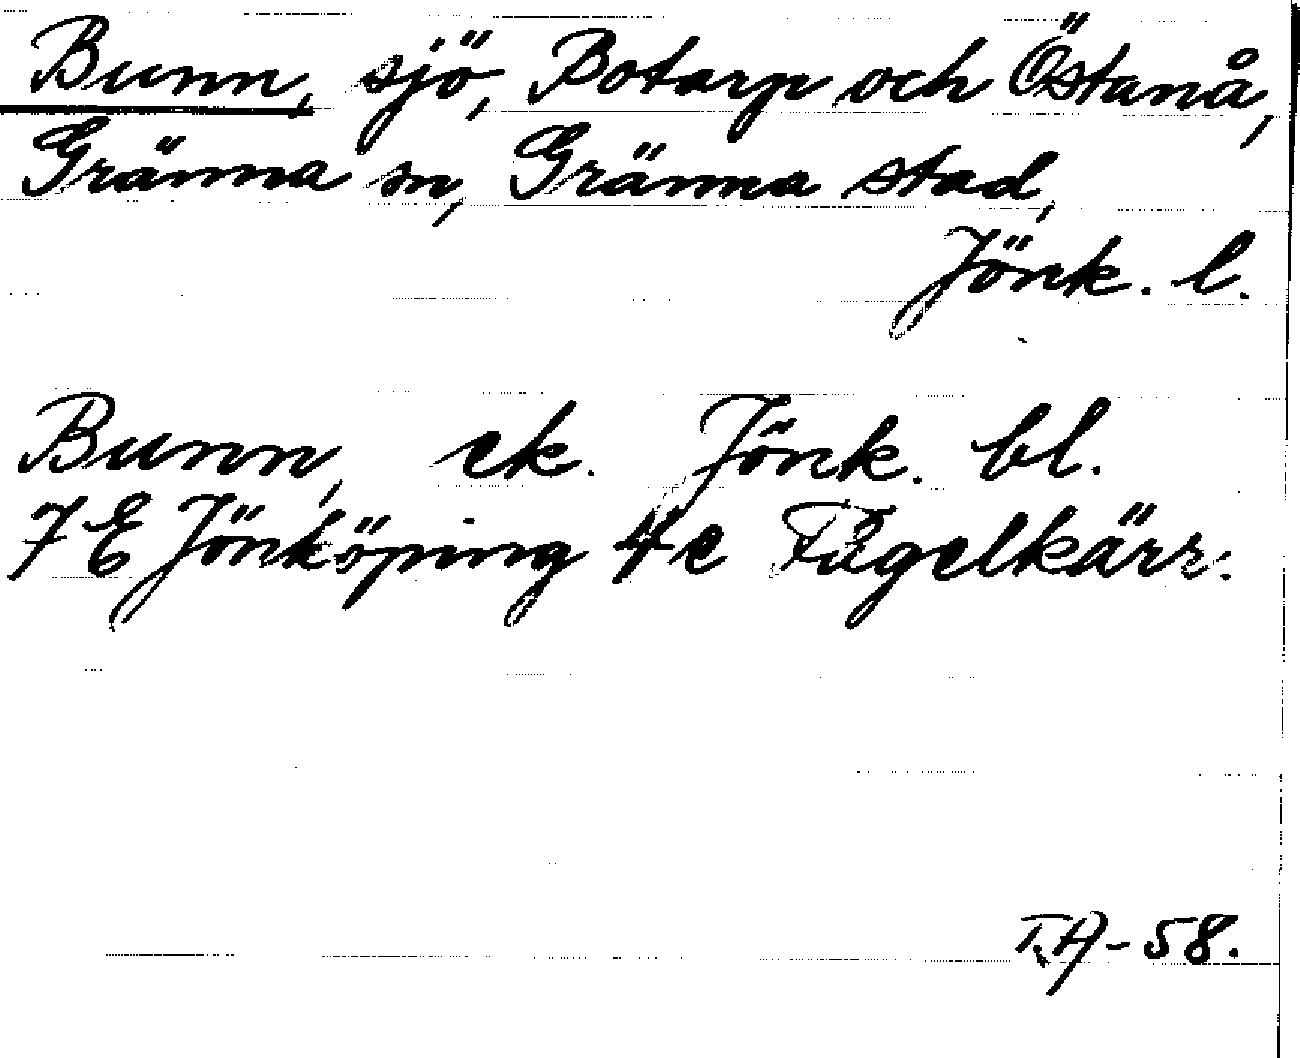 Bunn, sjö, Botarp och Östanå,
Gränna sn, Gränna stad,
Jönk. l.
Bunn, ek. Jönk. bl.
7 E Jönköping 4 e Fågelkärr.
T.A-58.